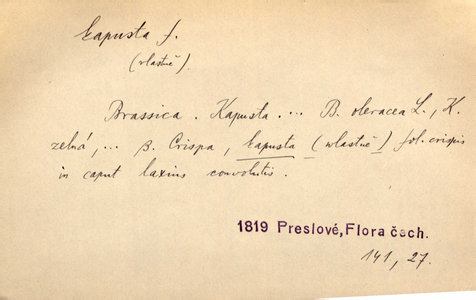 kapusta f.
(vlastně).
Brassica. Kapusta... B. oleracea L., K.
zelná,... β. Crispa, kapusta (wlastně) fol. crispis
in caput laxius convolutis.
1819 Preslové, Flora čech.
141, 27.